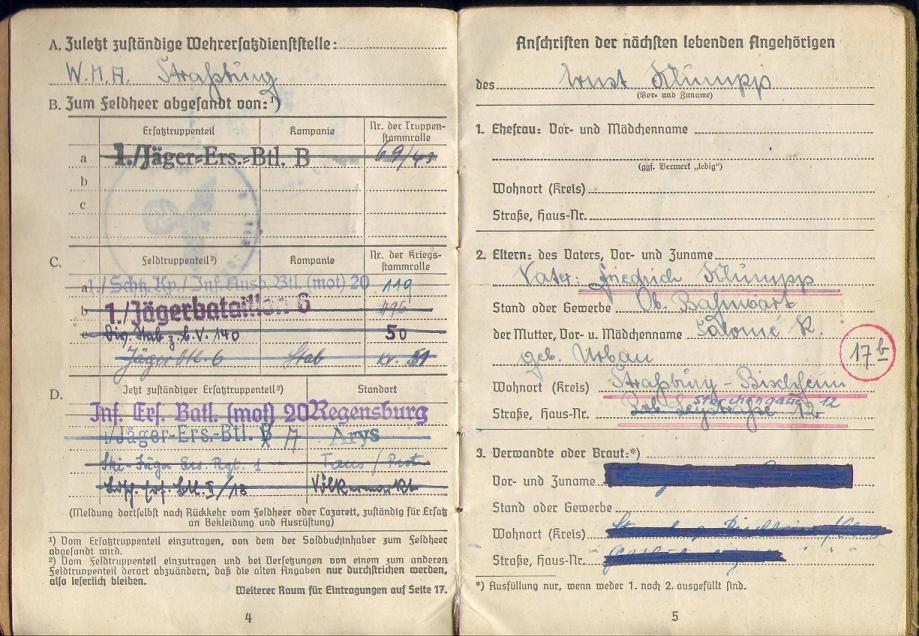 A. Zuletzt zuständige Wehrersatzdienststelle:
W.M.A. Straßburg
B. Zum Feldheer abgesandt von:¹)
Ersatztruppenteil Kompanie Nr. der Truppenstammrolle
a 1./Jäger-Ers.-Btl. B 69/43
b
c
C. Feldtruppenteil²) Kompanie Nr. der Kriegsstammrolle
a 1/Schtz. Kp./Inf. Ausb. Btl. (mot) 20 119
b 1./Jägerbataillon 6
c Div. Stab z.b.V. 140 50
Jäger Btl. 6 Stab 51
D. Jetzt zuständiger Ersatztruppenteil²) Standort
Inf. Ers. Batl. (mot) 20 Regensburg
1/Jäger-Ers.-Btl. A Arys
Ski-Jäger Ers. Rgt. 1 Taus / Prot.
Btl. I/18 Völkermarkt
(Meldung dortselbst nach Rückkehr vom Feldheer oder Lazarett, zuständig für Ersatz
an Bekleidung und Ausrüstung)
¹) Vom Ersatztruppenteil einzutragen, von dem der Soldbuchinhaber zum Feldheer
abgesandt wird.
²) Vom Feldtruppenteil einzutragen und bei Versetzungen von einem zum anderen
Feldtruppenteil derart abzuändern, daß die alten Angaben nur durchstrichen werden,
also leserlich bleiben.
Weiterer Raum für Eintragungen auf Seite 17.
4
Anschriften der nächsten lebenden Angehörigen
des Ernst Klumpp
(Vor- und Zuname)
1. Ehefrau: Vor- und Mädchenname
(ggf. Vermerk „ledig")
Wohnort (Kreis)
Straße, Haus-Nr.
2. Eltern: des Vaters, Vor- und Zuname
Vater: Friedrich Klumpp
Stand oder Gewerbe Ob. Bahnwart
der Mutter, Vor- u. Mädchenname Salomé K.
geb. Urban
17b
Wohnort (Kreis) Straßburg-Bischheim
Storchengasse 12
Straße, Haus-Nr. 12
3. Verwandte oder Braut:*)
Vor- und Zuname
Stand oder Gewerbe
Wohnort (Kreis)
Straße, Haus-Nr.
*) Ausfüllung nur, wenn weder 1. noch 2. ausgefüllt sind.
5